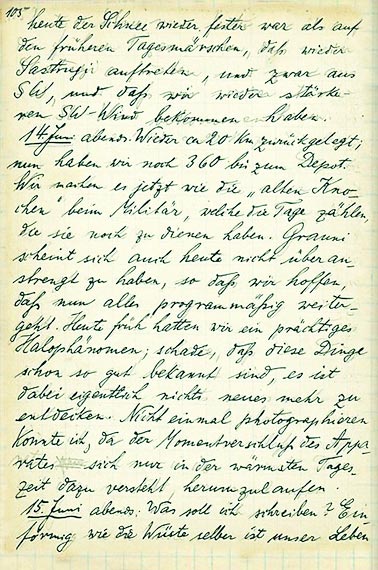 105
heute der Schnee wieder fester war als auf
den früheren Tagesmärschen, daß wieder
Sastrugi auftreten, und zwar aus
SW, und daß wir wieder stärke-
ren SW-Wind bekommen haben.
14. Juni abends. Wieder ca 20 km zurückgelegt;
nun haben wir noch 360 bis zum Depot.
Wir machen es jetzt wie die „alten Kno-
chen" beim Militär, welche die Tage zählen,
die sie noch zu dienen haben. Grauni
scheint sich auch heute nicht überan-
strengt zu haben, so daß wir hoffen,
daß nun alles programmäßig weiter-
geht. Heute früh hatten wir ein prächtiges
Halophänomen; schade, daß diese Dinge
schon so gut bekannt sind, es ist
dabei eigentlich nichts neues mehr zu
entdecken. Nicht einmal photographieren
konnte ich, da der Momentverschluß des Appa-
rates sich nur in der wärmsten Tages-
zeit dazu versteht, herumzulaufen.
15. Juni abends: Was soll ich schreiben? Ein-
förmig wie die Wüste selber ist unser Leben